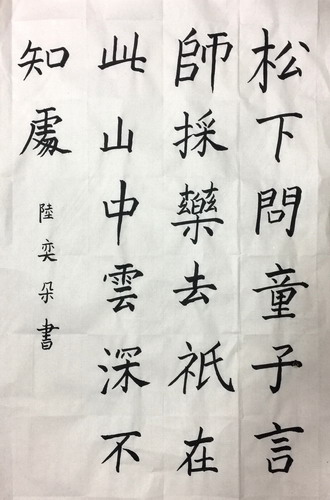 松下問童子言
師採藥去祇在
此山中雲深不
知處
陸奕朵書